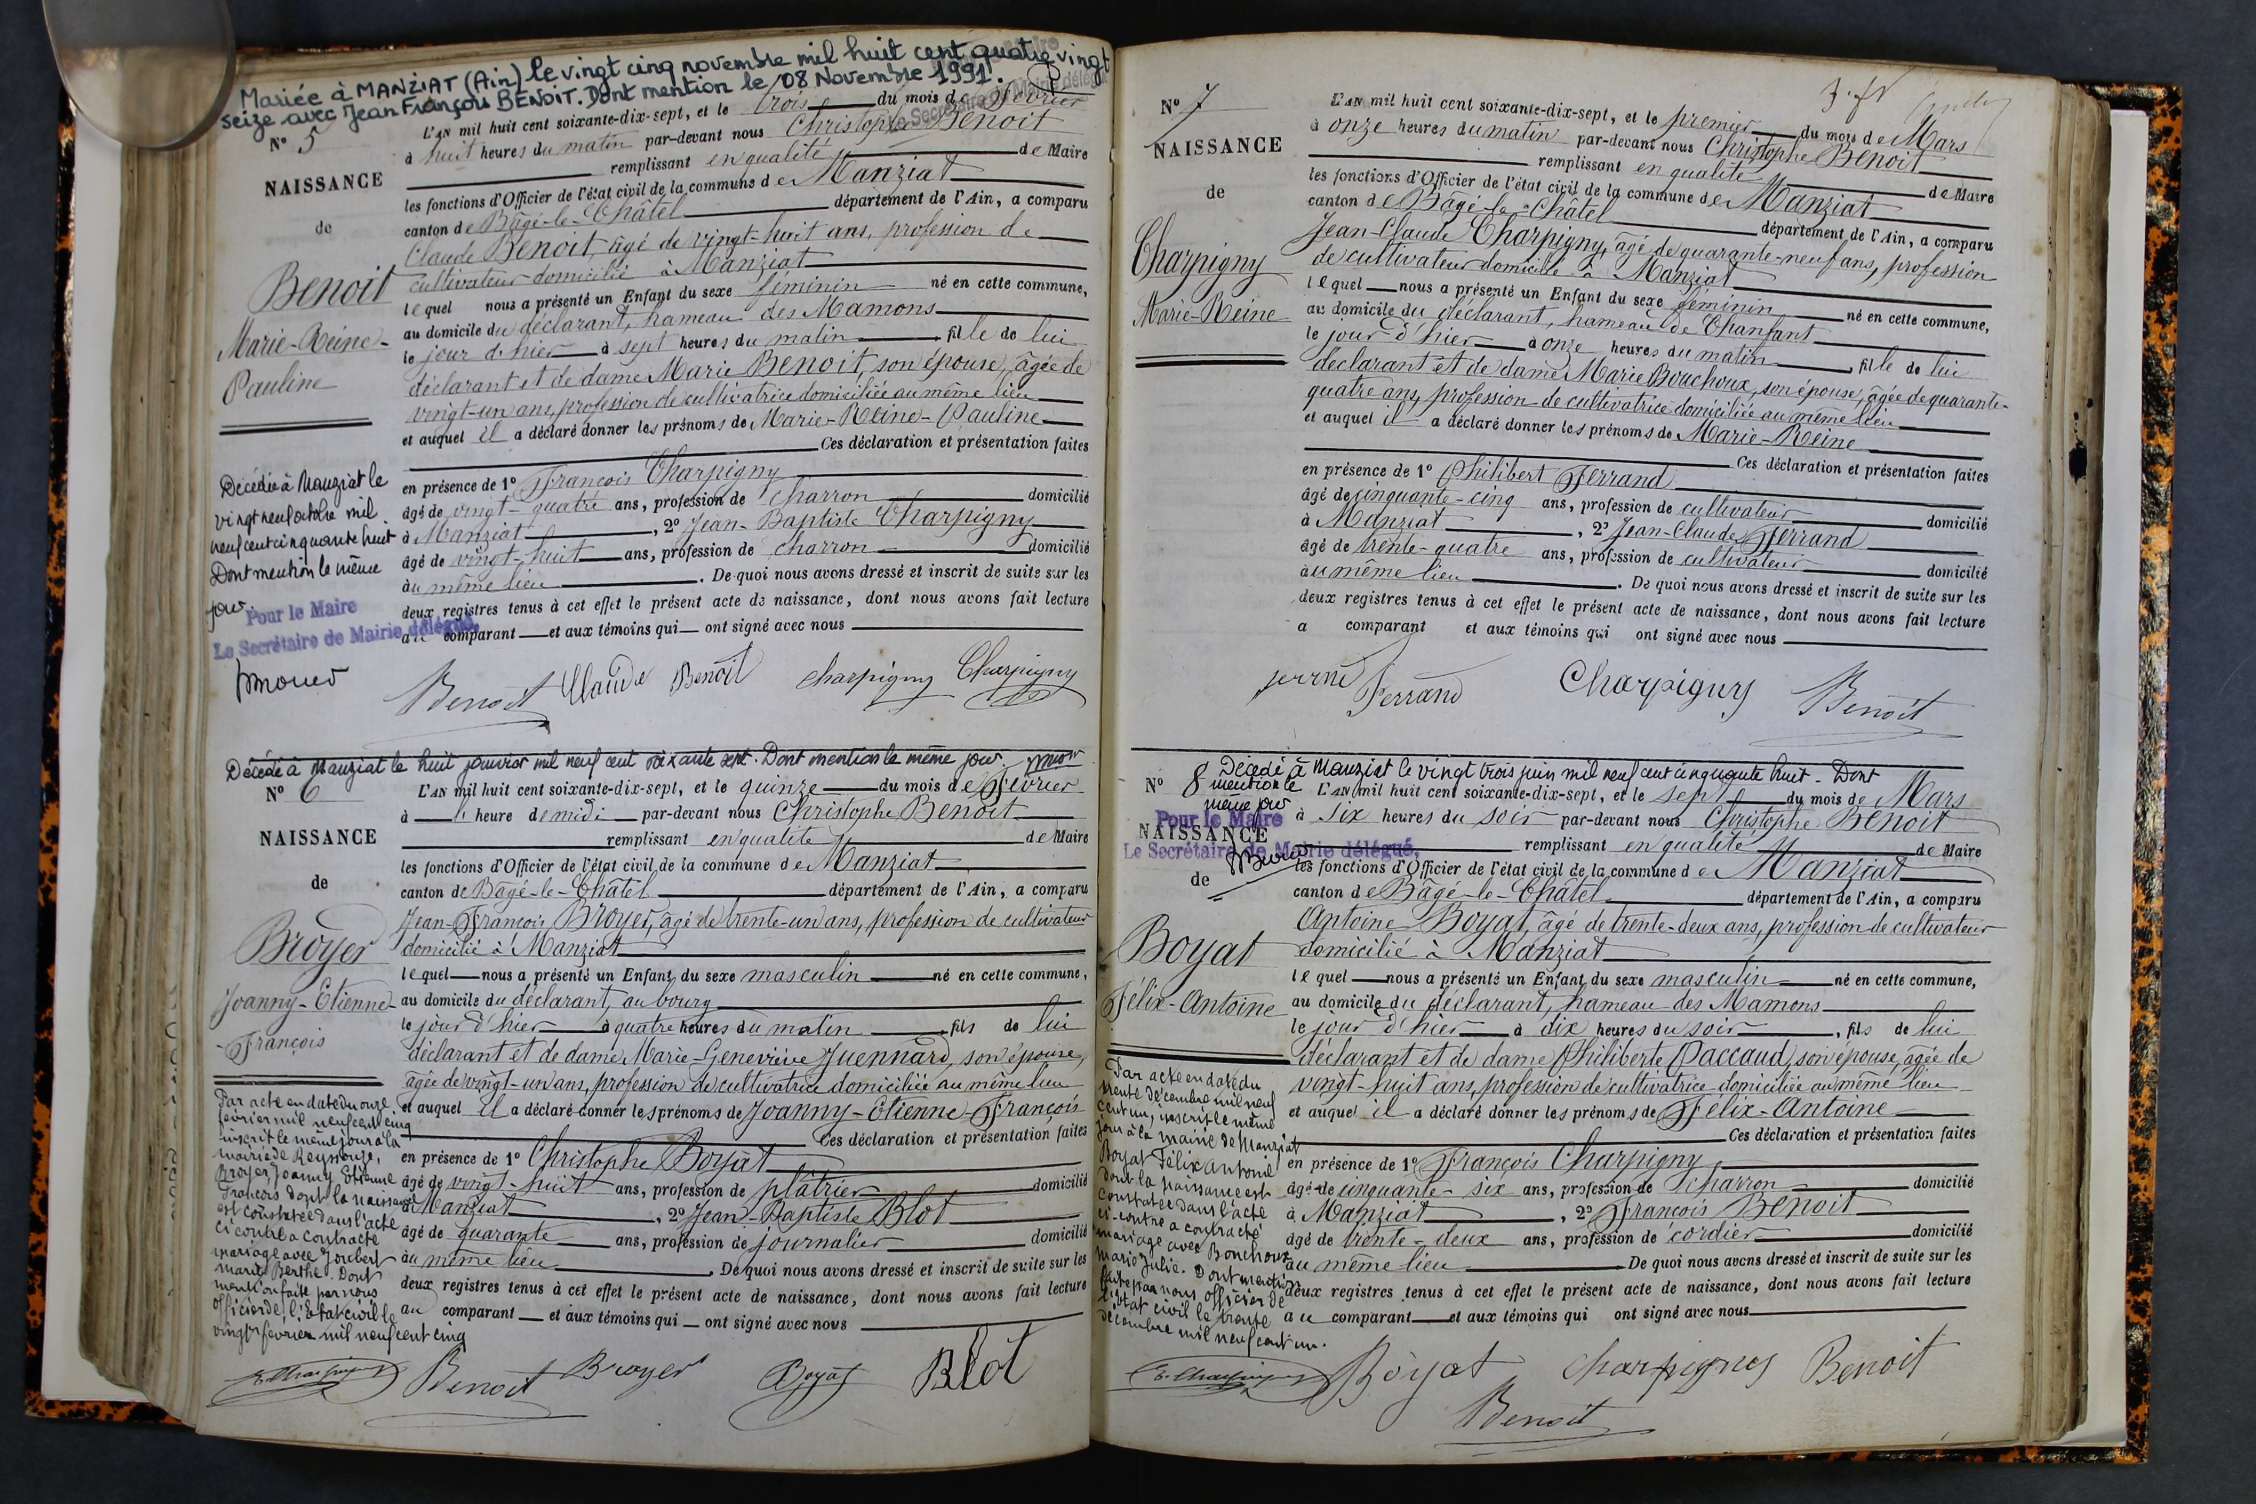 Mariée à MANZIAT (Ain) le vingt cinq novembre mil huit cent quatre vingt
seize avec Jean François BENOIT. Dont mention le 08 Novembre 1991.
N° 5
NAISSANCE
de
Benoit
Marie-Reine-
Pauline
L'AN mil huit cent soixante-dix-sept, et le trois du mois de février
à huit heures du matin par-devant nous Christophe Benoit
remplissant en qualité de Maire
les fonctions d'Officier de l'état civil de la commune de Manziat
canton de Bâgé-le-Châtel département de l'Ain, a comparu
Claude Benoit, âgé de vingt-huit ans, profession de
cultivateur domicilié à Manziat
lequel nous a présenté un Enfant du sexe féminin né en cette commune,
au domicile du déclarant, hameau des Mamons
le jour d'hier à sept heures du matin, fille de lui
déclarant et de dame Marie Benoit, son épouse, âgée de
vingt-un ans, profession de cultivatrice domiciliée au même lieu
et auquel il a déclaré donner les prénoms de Marie-Reine-Pauline
Ces déclaration et présentation faites
en présence de 1° François Charpigny
âgé de vingt-quatre ans, profession de charron domicilié
à Manziat, 2° Jean-Baptiste Charpigny
âgé de vingt-huit ans, profession de charron domicilié
au même lieu. De quoi nous avons dressé et inscrit de suite sur les
deux registres tenus à cet effet le présent acte de naissance, dont nous avons fait lecture
au comparant et aux témoins qui ont signé avec nous
Décédée à Manziat le
vingt neuf octobre mil
neuf cent cinquante huit
Dont mention le même
jour.
Pour le Maire
Le Secrétaire de Mairie délégué,
Benoit Claude Benoit Charpigny Charpigny
Décédé à Manziat le huit janvier mil neuf cent soixante sept. Dont mention le même jour
N° 6
NAISSANCE
de
Broyer
Joanny-Etienne
-François
L'AN mil huit cent soixante-dix-sept, et le quinze du mois de Février
à heure de midi par-devant nous Christophe Benoit
remplissant en qualité de Maire
les fonctions d'Officier de l'état civil de la commune de Manziat
canton de Bâgé-le-Châtel département de l'Ain, a comparu
Jean-François Broyer, âgé de trente-un ans, profession de cultivateur
domicilié à Manziat
lequel nous a présenté un Enfant du sexe masculin né en cette commune,
au domicile du déclarant, au bourg
le jour d'hier à quatre heures du matin, fils de lui
déclarant et de dame Marie-Geneviève Juennard, son épouse,
âgée de vingt-un ans, profession de cultivatrice domiciliée au même lieu
et auquel il a déclaré donner les prénoms de Joanny-Etienne-François
Ces déclaration et présentation faites
en présence de 1° Christophe Boyat
âgé de vingt-huit ans, profession de plâtrier domicilié
à Manziat, 2° Jean-Baptiste Blot
âgé de quarante ans, profession de journalier domicilié
au même lieu. De quoi nous avons dressé et inscrit de suite sur les
deux registres tenus à cet effet le présent acte de naissance, dont nous avons fait lecture
au comparant et aux témoins qui ont signé avec nous
Par acte en date du onze
février mil neuf cent cinq
inscrit le même jour à la
mairie de Reyssouze,
Broyer, Joanny Etienne
François dont la naissance
est constatée dans l'acte
ci contre a contracté
mariage avec Joubert
Marie Berthe. Dont
mention faite par nous
officier de l'Etat civil le
vingt février mil neuf cent cinq
Benoit Broyer Boyat Blot
N° 7
NAISSANCE
de
Charpigny
Marie-Reine
L'AN mil huit cent soixante-dix-sept, et le premier du mois de Mars
à onze heures du matin par-devant nous Christophe Benoit
remplissant en qualité de Maire
les fonctions d'Officier de l'état civil de la commune de Manziat
canton de Bâgé-le-Châtel département de l'Ain, a comparu
Jean-Claude Charpigny, âgé de quarante-neuf ans, profession
de cultivateur domicilié à Manziat
lequel nous a présenté un Enfant du sexe féminin né en cette commune,
au domicile du déclarant, hameau de Chanfant
le jour d'hier à onze heures du matin, fille de lui
déclarant et de dame Marie Bouchoux, son épouse, âgée de quarante-
quatre ans, profession de cultivatrice domiciliée au même lieu
et auquel il a déclaré donner les prénoms de Marie-Reine
Ces déclaration et présentation faites
en présence de 1° Philibert Ferrand
âgé de cinquante-cinq ans, profession de cultivateur domicilié
à Manziat, 2° Jean-Claude Ferrand
âgé de trente-quatre ans, profession de cultivateur domicilié
au même lieu. De quoi nous avons dressé et inscrit de suite sur les
deux registres tenus à cet effet le présent acte de naissance, dont nous avons fait lecture
a comparant et aux témoins qui ont signé avec nous
Ferrand Charpigny Benoit
Décédé à Manziat le vingt trois juin mil neuf cent cinquante huit - Dont
mention le
même jour
Pour le Maire
Le Secrétaire de Mairie délégué,
N° 8
NAISSANCE
de
Boyat
Félix-Antoine
L'AN mil huit cent soixante-dix-sept, et le sept du mois de Mars
à six heures du soir par-devant nous Christophe Benoit
remplissant en qualité de Maire
les fonctions d'Officier de l'état civil de la commune de Manziat
canton de Bâgé-le-Châtel département de l'Ain, a comparu
Antoine Boyat, âgé de trente-deux ans, profession de cultivateur
domicilié à Manziat
lequel nous a présenté un Enfant du sexe masculin né en cette commune,
au domicile du déclarant, hameau des Mamons
le jour d'hier à dix heures du soir, fils de lui
déclarant et de dame Philiberte Paccaud, son épouse, âgée de
vingt-huit ans, profession de cultivatrice domiciliée au même lieu
et auquel il a déclaré donner les prénoms de Félix-Antoine
Ces déclaration et présentation faites
en présence de 1° François Charpigny
âgé de cinquante-six ans, profession de charron domicilié
à Manziat, 2° François Benoit
âgé de trente-deux ans, profession de cordier domicilié
au même lieu De quoi nous avons dressé et inscrit de suite sur les
deux registres tenus à cet effet le présent acte de naissance, dont nous avons fait lecture
au comparant et aux témoins qui ont signé avec nous
Par acte en date du
trente décembre mil neuf
cent un, inscrit le même
jour à la mairie de Manziat
Boyat Félix Antoine
dont la naissance est
constatée dans l'acte
ci-contre a contracté
mariage avec Bouchoux
Marie Julie. Dont mention
faite par nous officier de
l'Etat civil le trente
décembre mil neuf cent un.
Boyat Charpigny Benoit
Benoit